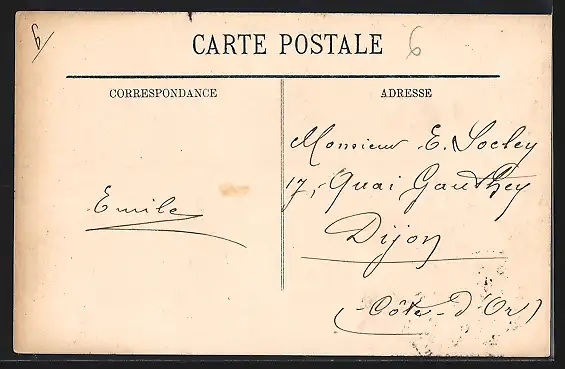 6
CARTE POSTALE
6
CORRESPONDANCE
ADRESSE
Monsieur E. Socley
17, Quai Gauthey
Emile
Dijon
(Côte-d'Or)